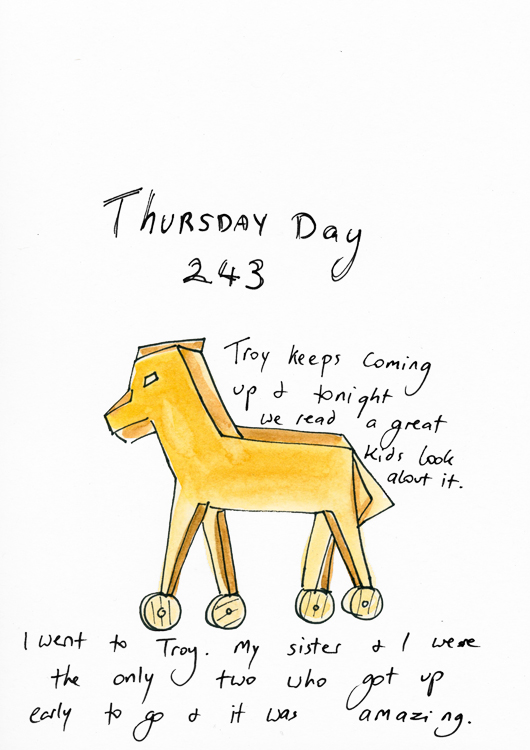 THURSDAY Day
243
Troy keeps coming
up & tonight
we read a great
kids look
about it.
I went to Troy. My sister & I were
the only two who got up
early to go & it was amazing.